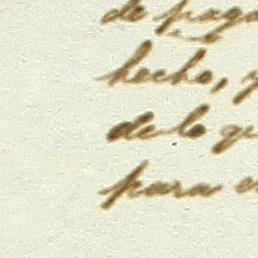 de paga
hecho, y
de lo qu
para e